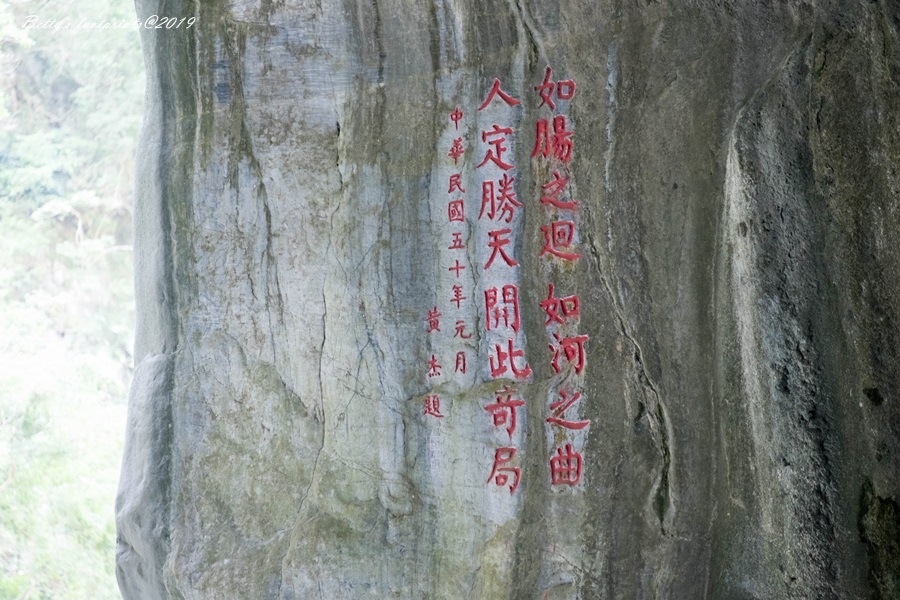 如腸之迴如河之曲
人定勝天開此奇局
中華民國五十年元月
黃杰題
@2019